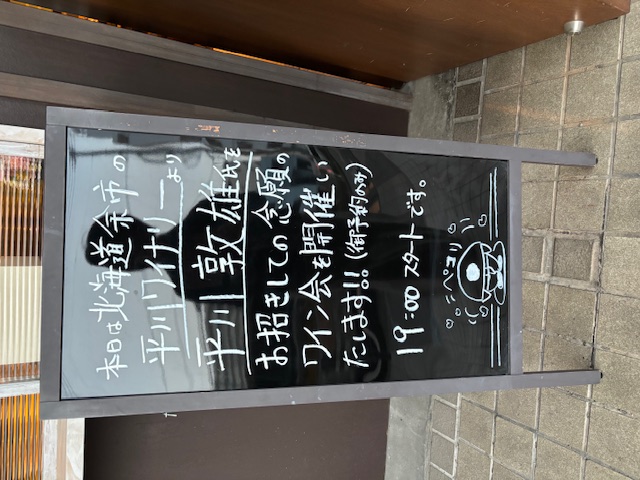 本日は北海道余市の
平川ワイナリーより
平川敦雄氏を
お招きしての念願の
ワイン会を開催い
たします!!(御予約のみ)
19:00 スタートです。
ペコリ